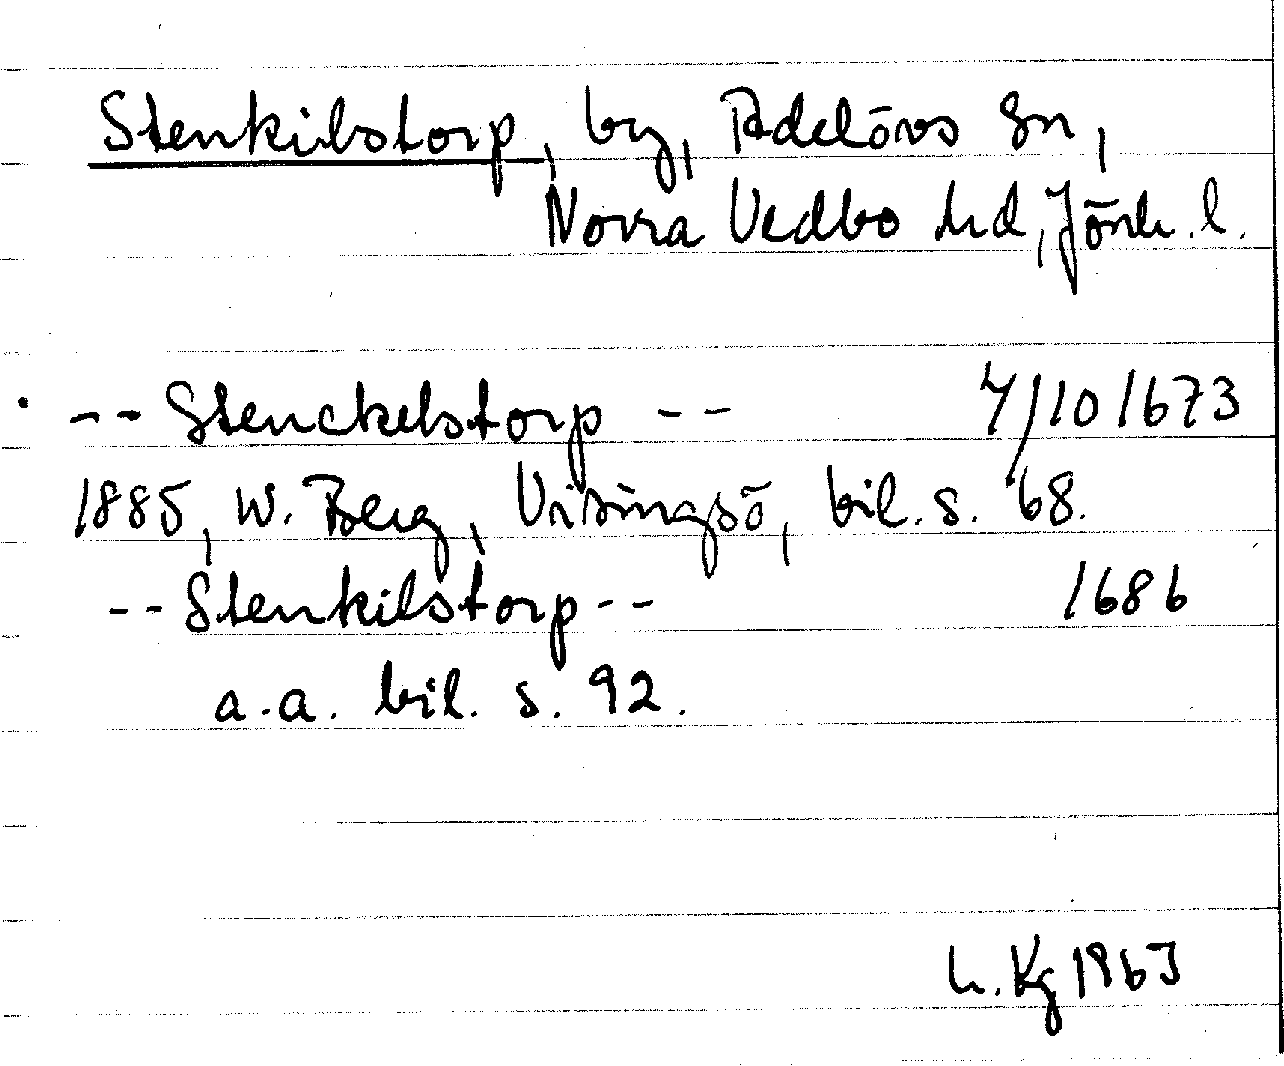 Stenkilstorp, by, Adelövs sn,
Norra Vedbo hd, Jönk. l.
-- Stenckelstorp -- 7/10 1673
1885, W. Berg, Visingsö, bil. s. 68.
-- Stenkilstorp -- 1686
a.a. bil. s. 92.
L. Kg 1963